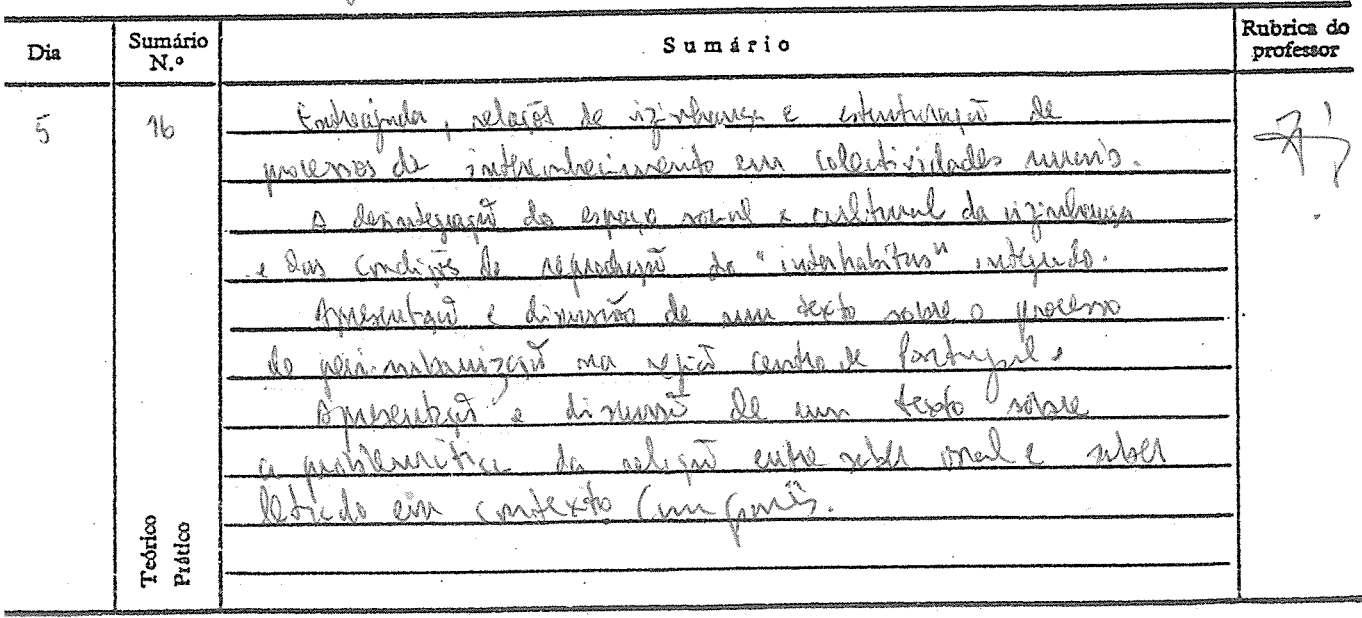 Dia
Sumário N.º
Sumário
Rubrica do professor
5
16
Entreajuda, relações de vizinhança e estruturação de
processos de interconhecimento em colectividades rurais.
A desintegração do espaço social e cultural da vizinhança
e das condições de reprodução do "interhabitus" integrado.
Apresentação e discussão de um texto sobre o processo
de peri-urbanização na região centro de Portugal.
Apresentação e discussão de um texto sobre
a problemática da relação entre saber oral e saber
letrado em contexto camponês.
Teórico
Prático